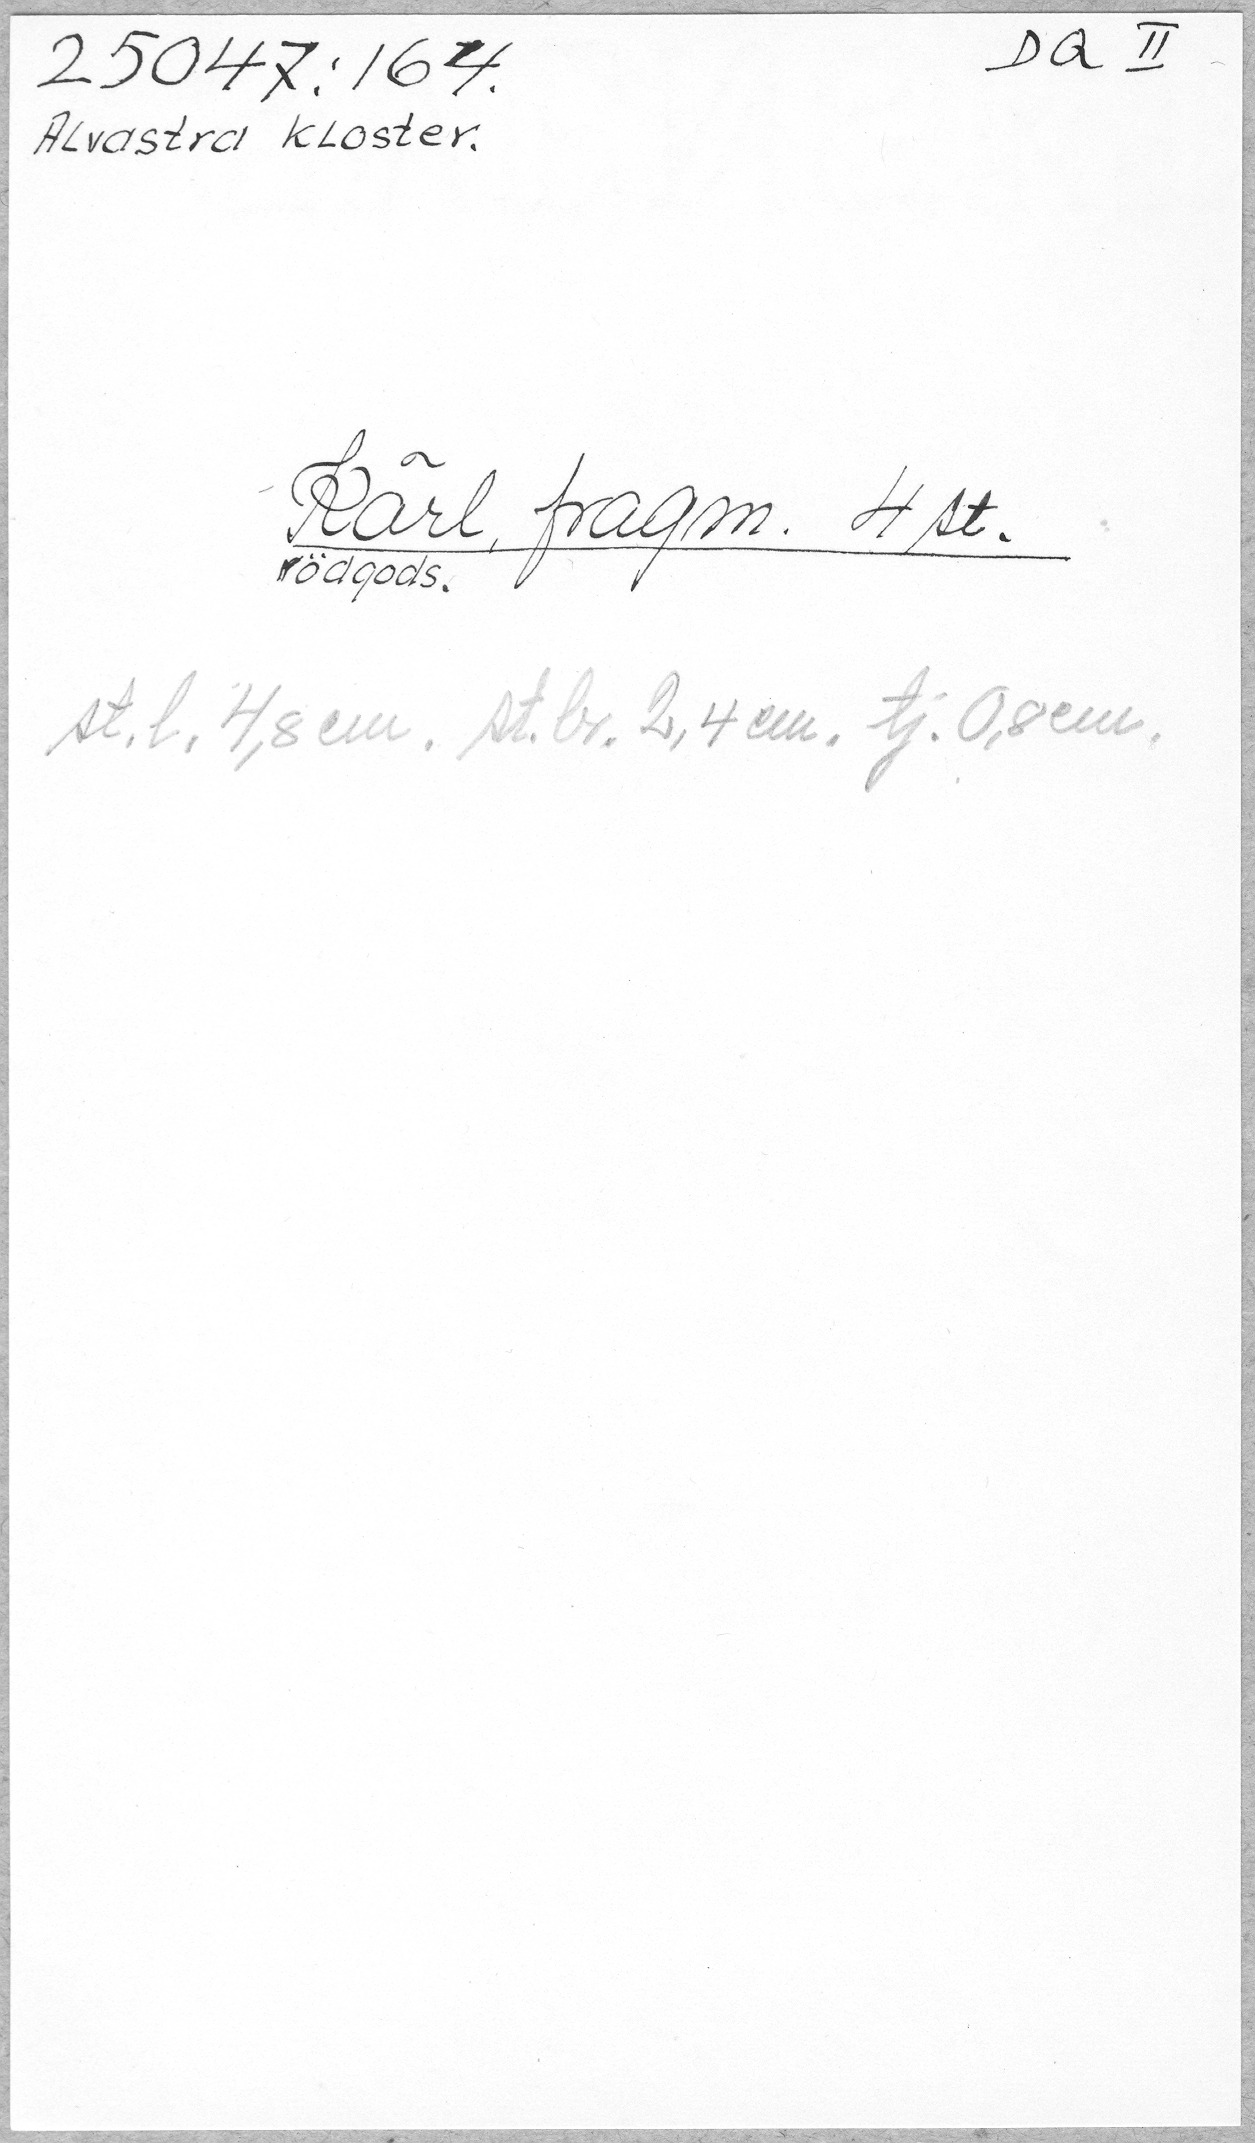 25047:164.
DQ II
Alvastra kloster.
Kärl, fragm. 4 st.
rödgods.
st.l. 4,8 cm. st.br. 2,4 cm. tj. 0,8 cm.